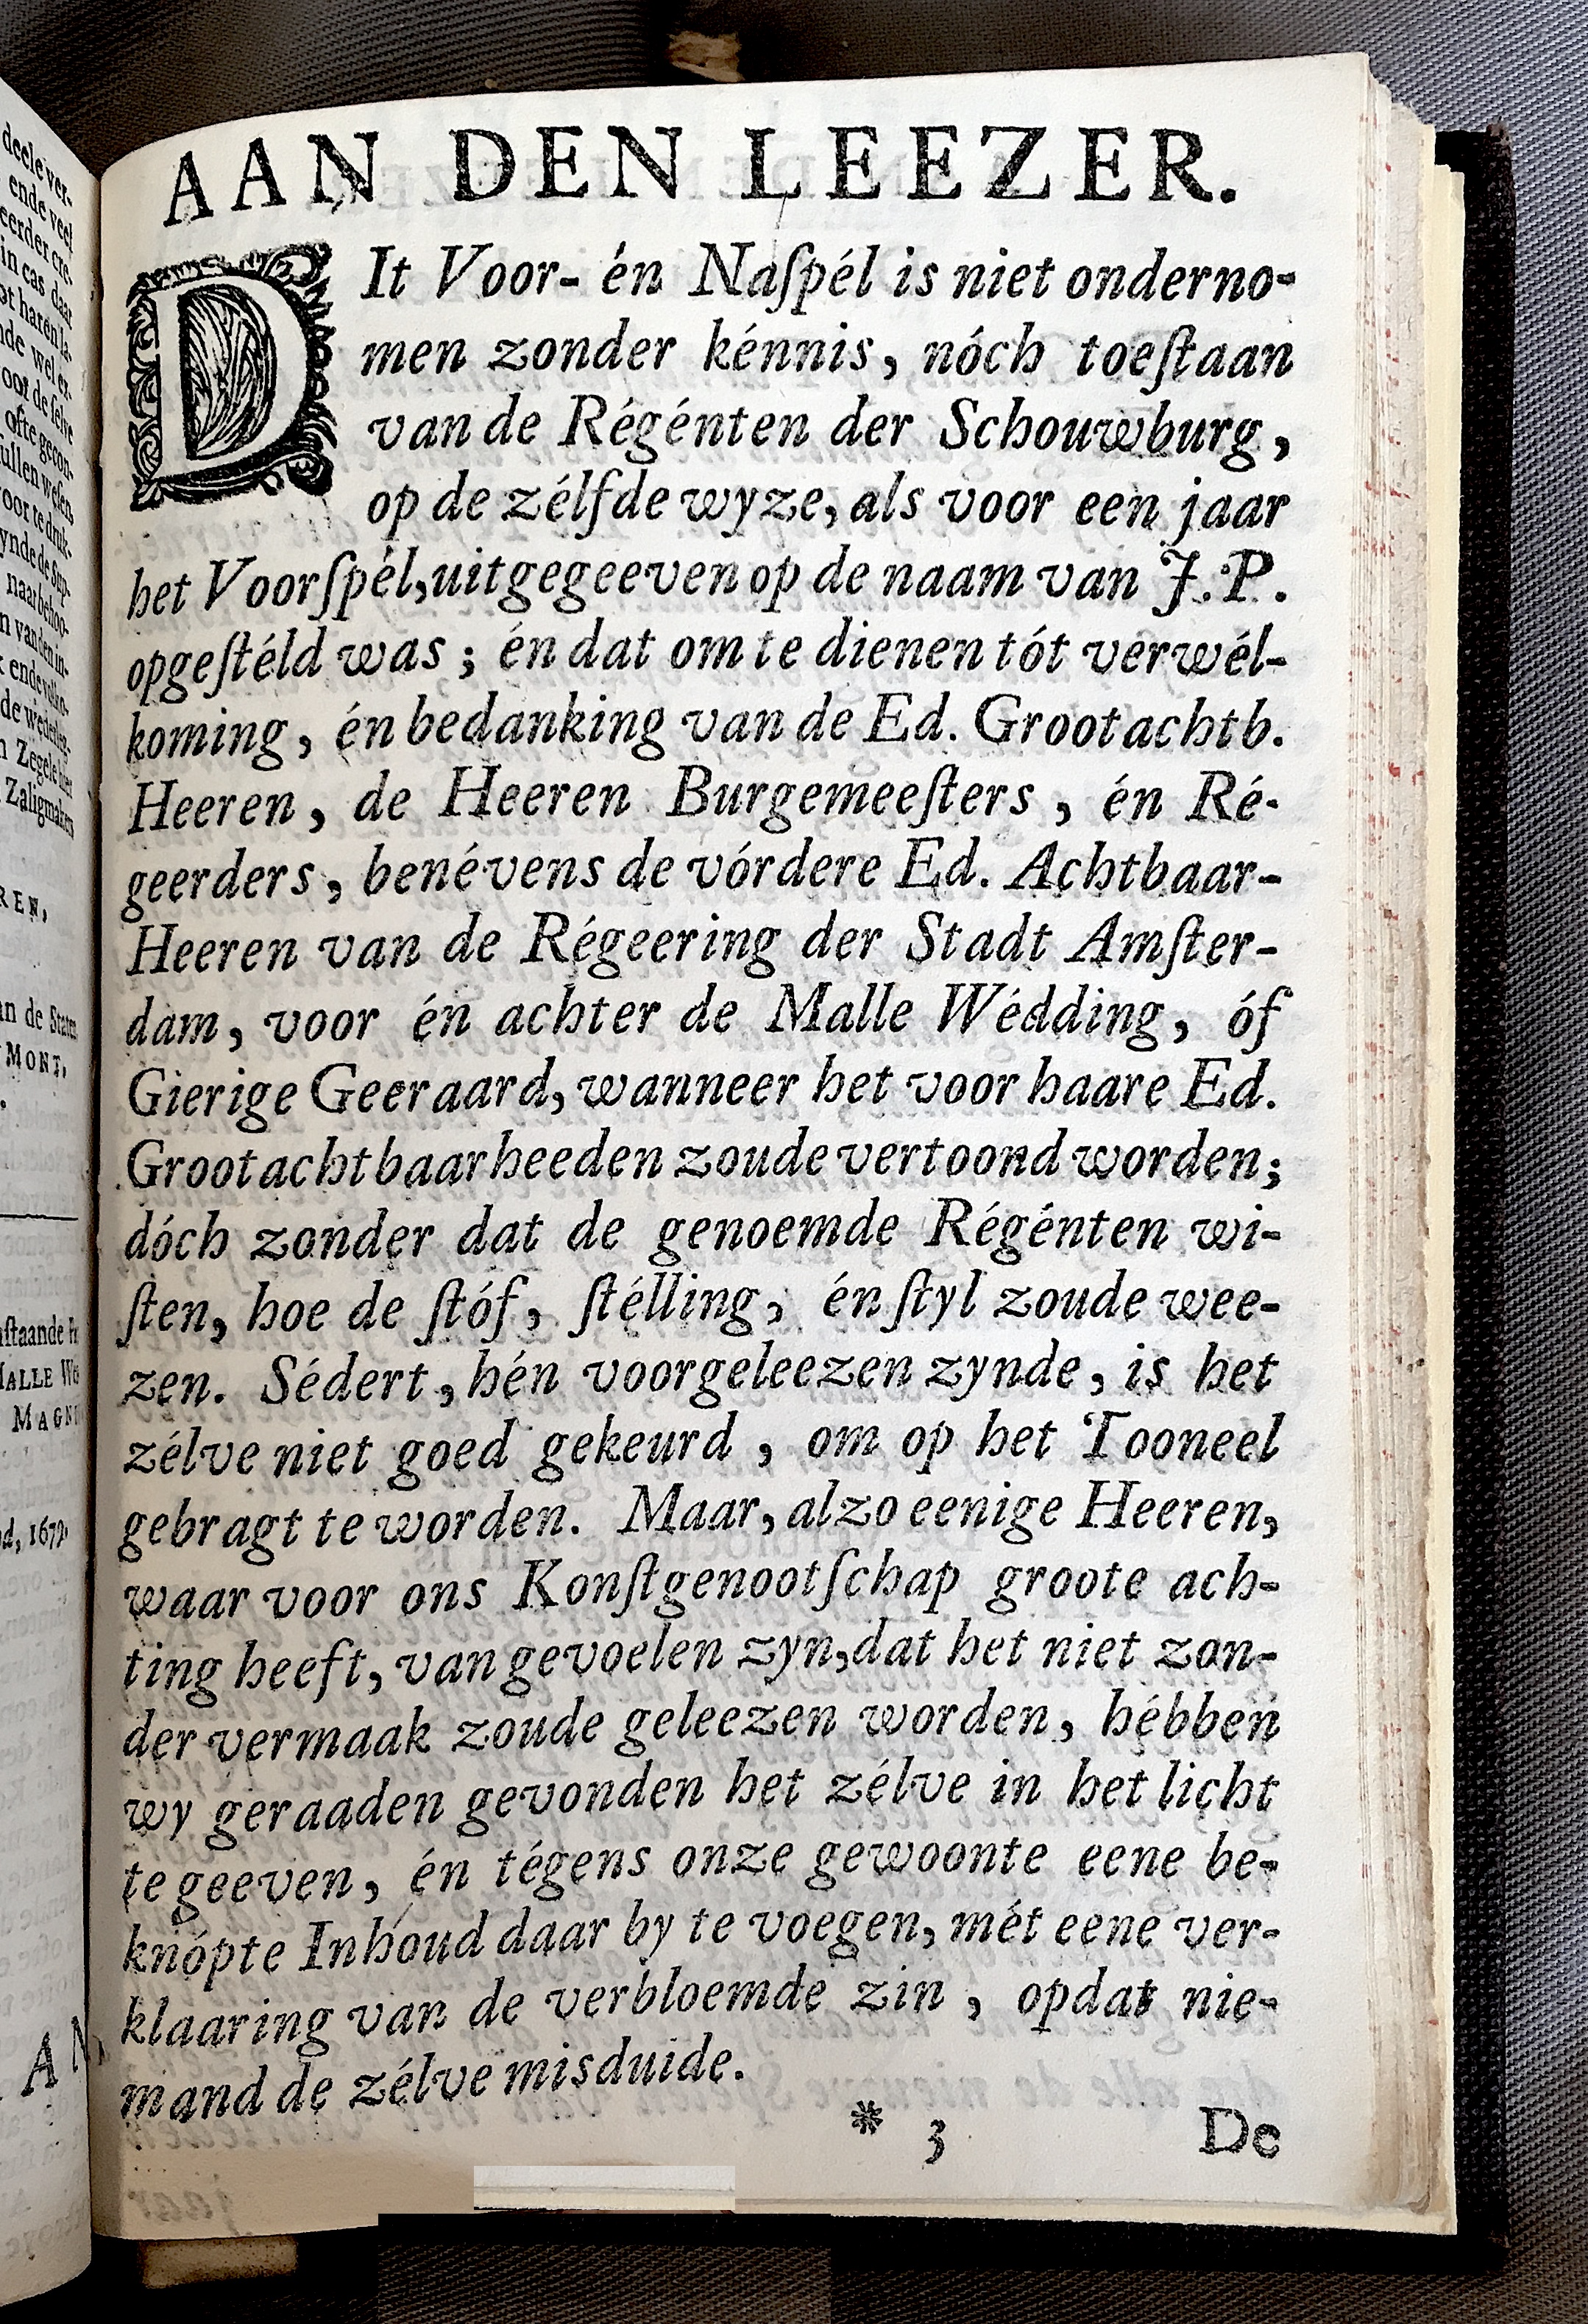 AAN DEN LEEZER.
DIt Voor- én Naſpél is niet onderno-
men zonder kénnis, nóch toeſtaan
van de Régénten der Schouwburg,
op de zélfde wyze, als voor een jaar
het Voorſpél, uitgegeeven op de naam van J. P.
opgeſtéld was; én dat om te dienen tót verwél-
koming, én bedanking van de Ed. Grootachtb.
Heeren, de Heeren Burgemeeſters, én Ré-
geerders, benévens de vórdere Ed. Achtbaar-
Heeren van de Régeering der Stadt Amſter-
dam, voor én achter de Malle Wédding, óf
Gierige Geeraard, wanneer het voor haare Ed.
Grootachtbaarheeden zoude vertoond worden;
dóch zonder dat de genoemde Régénten wi-
ſten, hoe de ſtóf, ſtélling, én ſtyl zoude wee-
zen. Sédert, hén voorgeleezen zynde, is het
zélve niet goed gekeurd, om op het Tooneel
gebragt te worden. Maar, alzo eenige Heeren,
waar voor ons Konſtgenootſchap groote ach-
ting heeft, van gevoelen zyn, dat het niet zon-
der vermaak zoude geleezen worden, hébben
wy geraaden gevonden het zélve in het licht
te geeven, én tégens onze gewoonte eene be-
knópte Inhoud daar by te voegen, mét eene ver-
klaaring van de verbloemde zin, opdat nie-
mand de zélve misduide.
* 3 De
deele ver-
ende veel
in cas daar
de wel er-
oot de ſelve
ofte gecon-
REN,
an de Staten
MONT,
MALLE
MAGN
AN,